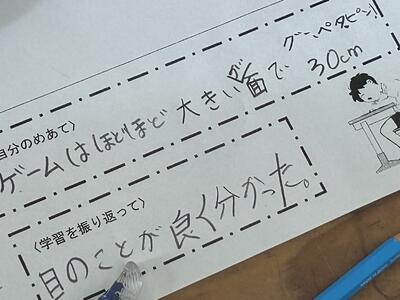 自分のめあて〉
グー、ペタ、ピン!!
ゲームはほどほど 大きい画面で 30cm
〈学習を振り返って〉
目のことが良く分かった。